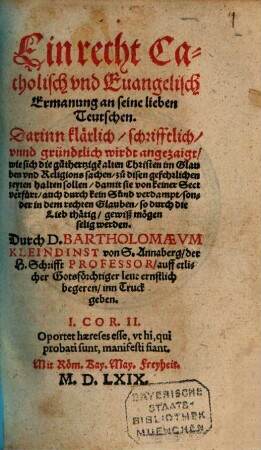 Ein recht Ca-
tholisch vnd Euangelisch
Ermanung an seine lieben
Teutschen.
Darinn klärlich / schrifftlich /
vnnd gründtlich wirdt angezaigt /
wie sich die gůtherzige alten Christen im Glau
ben vnd Religions sachen / zů disen gefehrlichen
zeyten halten sollen / damit sie von keiner Sect
verfürt / auch durch kein Sünd verdampt / son-
der in dem rechten Glauben / so durch die
Lieb thätig / gewiß mögen
selig werden.
Durch D. BARTHOLOMÆVM
KLEINDINST von S. Annaberg / der
H. Schrifft PROFESSOR / auff etli-
cher Gottsförchtiger leut ernstlich
begeren / inn Truck
geben.
I. COR. II.
Oportet hæreses esse, vt hi, qui
probati sunt, manifesti fiant.
Mit Röm. Kay. May. Freyheit.
M. D. LXIX.
BAYERISCHE
STAATS-
BIBLIOTHEK
MUENCHEN